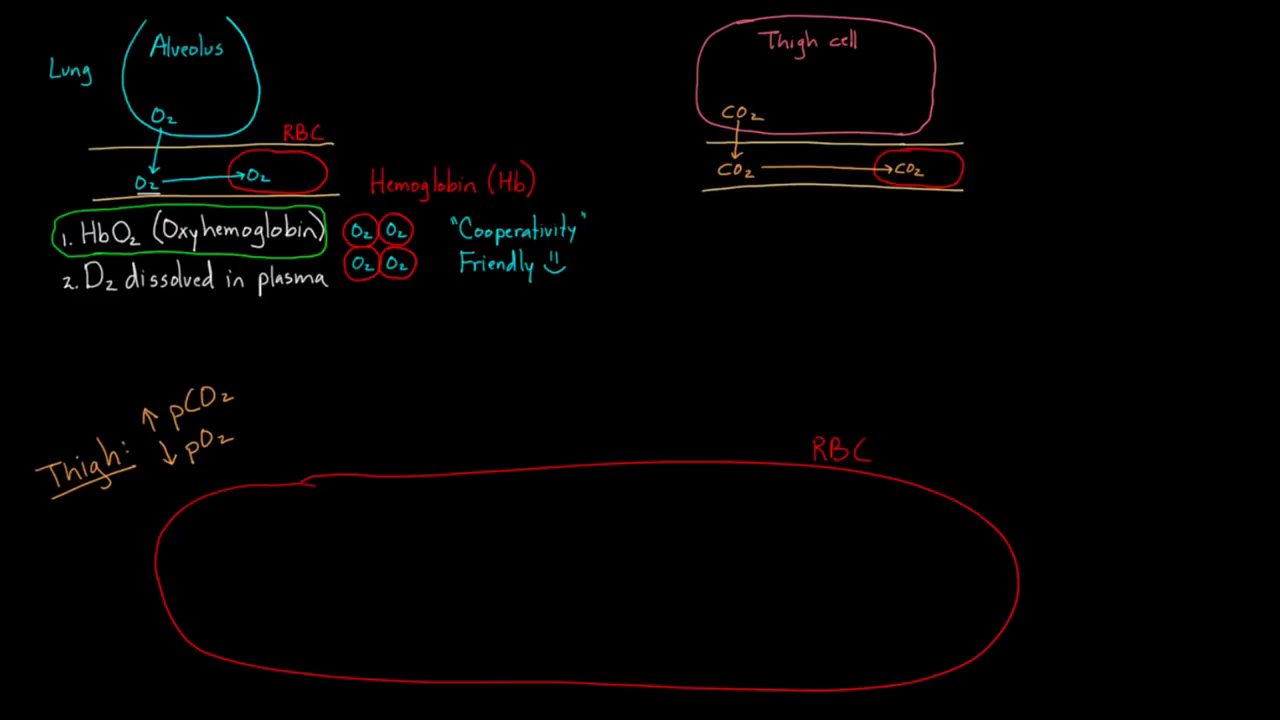 Lung
Alveolus
O₂
RBC
O₂ O₂
Hemoglobin (Hb)
1. HbO₂ (Oxyhemoglobin)
2. O₂ dissolved in plasma
O₂ O₂
O₂ O₂
"Cooperativity"
Friendly
Thigh cell
CO₂
CO₂ CO₂
Thigh: ↑ pCO₂
↓ pO₂
RBC